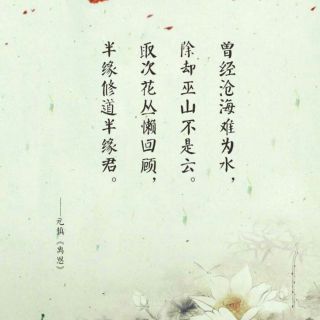 曾经沧海难为水，
除却巫山不是云。
取次花丛懒回顾，
半缘修道半缘君。
——元稹《离思》